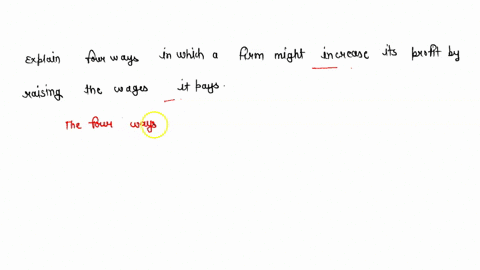 Explain four ways in which a firm might increase its profit by
raising the wages it pays.
The four ways